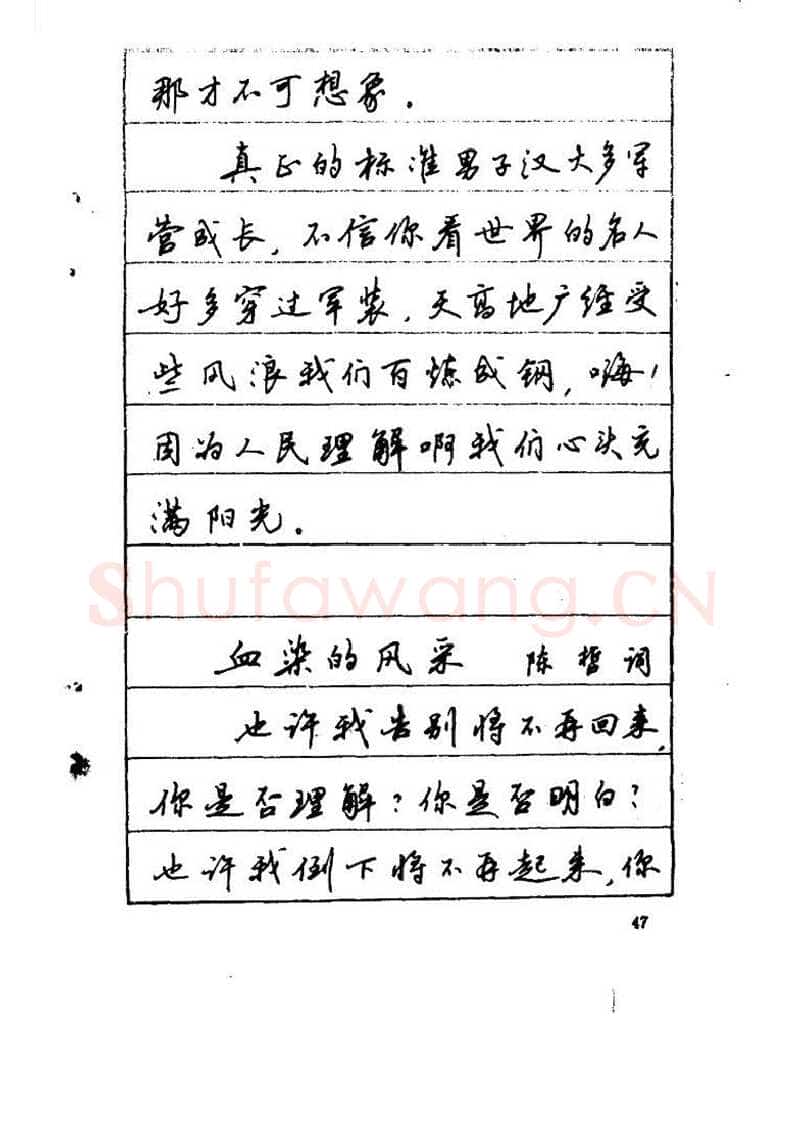 那才不可想象.
真正的标准男子汉大多军
营成长,不信你看世界的名人
好多穿过军装,天高地广经受
些风浪我们百炼成钢,嗨!
因为人民理解啊我们心头充
满阳光。
Shufawang.CN
血染的风采 陈哲词
也许我告别将不再回来,
你是否理解?你是否明白?
也许我倒下将不再起来,你
47